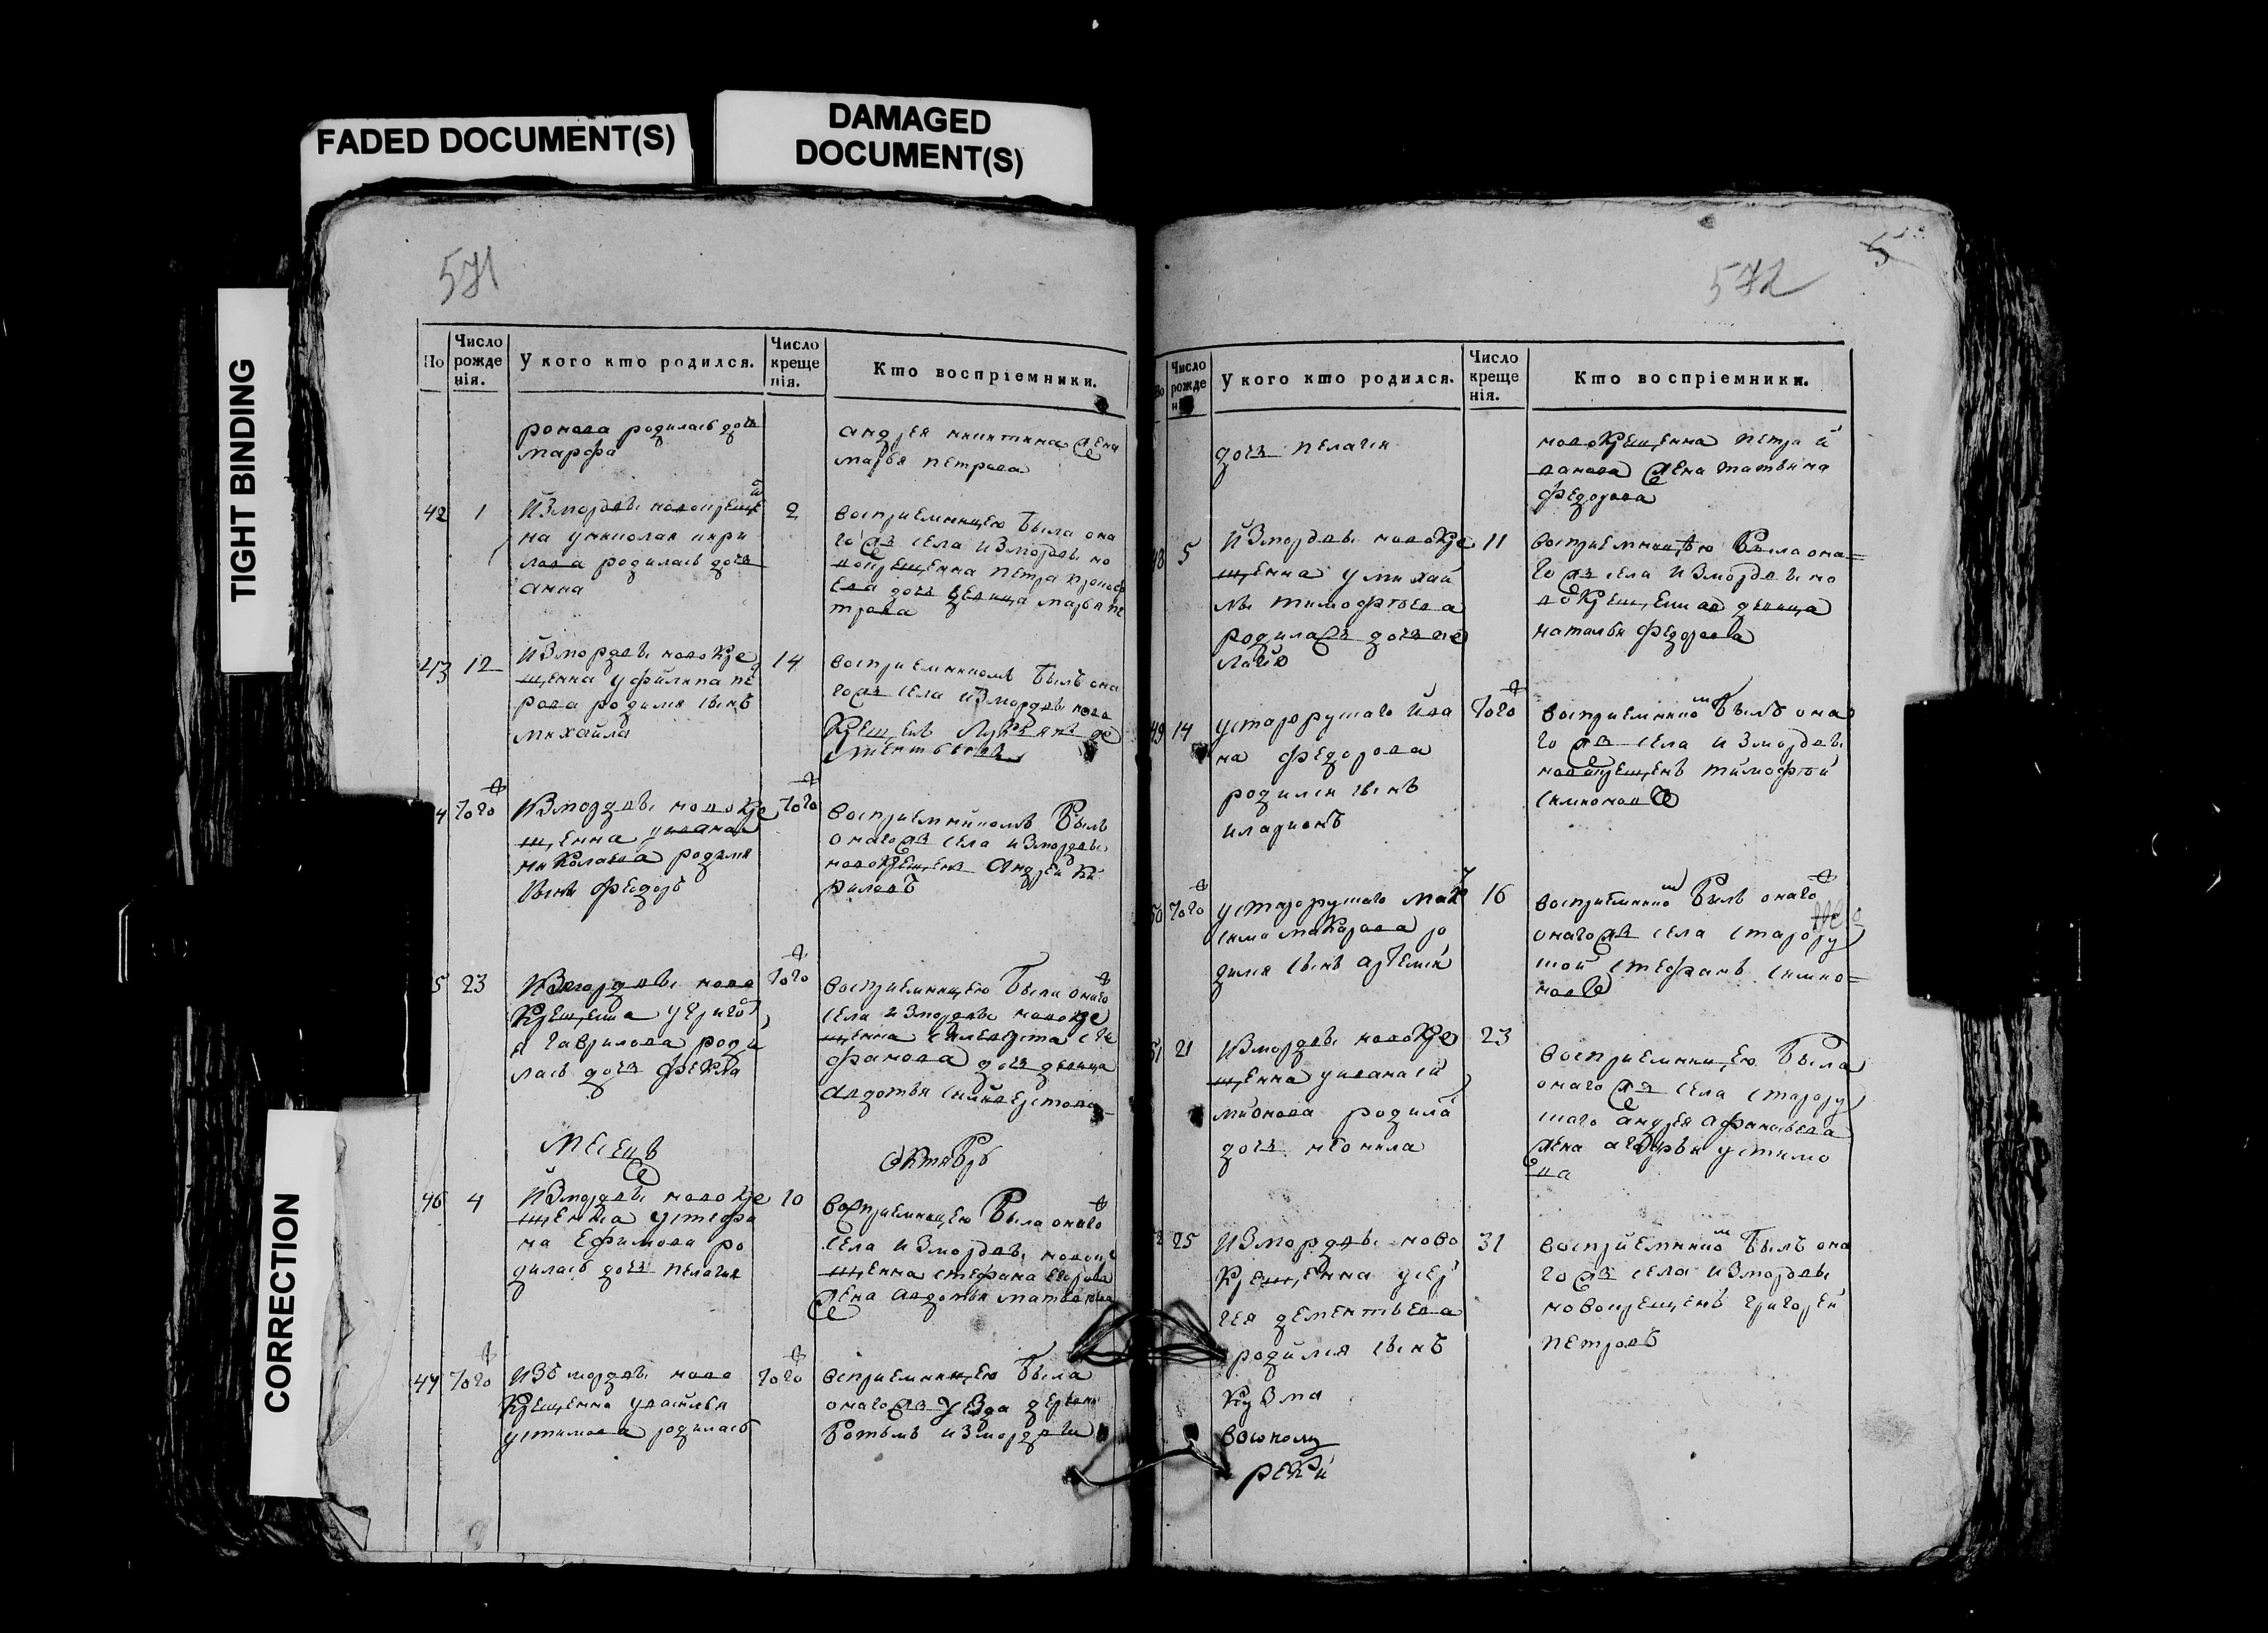 FADED DOCUMENT(S)
DAMAGED
DOCUMENT(S)
TIGHT BINDING
CORRECTION
571
По
Число
рожде
нія.
У кого кто родился.
Число
креще
нія.
Кто воспріемники.
ронова родилась дочь
марфа
андрея никитина жена
марья петрова
42 1
измордвы новокреще
на униколая кири
лова родилась дочь
анна
2
восприемницею была она
гожъ села измордвы но
вокрещенна петра
дочь девица марья пе
трова
43 12
измордвы новокре
щенна уфилипа пе
рова родился сынъ
михайла
14
восприемникомъ былъ она
гожъ села измордвы ново
крещенъ
4 того ж
измордвы новокре
щенна уивана
николаева родился
сынъ федоръ
того ж
восприемникомъ былъ
оногожъ села измордвы
новокрещенъ андрей ки
риловъ
5 23
измордвы ново
крещенна угриго
я гаврилова роди
лась дочь фекла
того ж
восприемницею была оного ж
села измордвы новокре
щенна силвеста сте
фанова дочь девица
авдотья
месецъ
октябрь
46 4
измордвы новокре
щенна устефа
на ефимова ро
дилась дочь пелагия
10
восприемницею была оного ж
села измордвы новокре
щенна стефана егорова
жена авдотья матвеева
47 того ж
изъ мордвы ново
крещенна увасилья
устимова родилась
того ж
восприемницею была
оногожъ уезда деревни
ботьмъ измордвы
572
5
По
Число
рожде
нія.
У кого кто родился.
Число
креще
нія.
Кто воспріемники.
дочь пелагия
новокрещенна петра и
ванова жена татьяна
федорова
48 5
измордвы новокре
щенна умихай
лы тимофеева
родилась дочь пе
лагия
11
восприемницею была она=
гожъ села измордвы но
вокрещенная девица
наталья федорова
49 14
устарорускаго ива
на федорова
родился сынъ
иларионъ
того ж
восприемникомъ былъ она
гожъ села измордвы
новокрещенъ тимофей
симионовъ
50 того ж
устарорускаго мак
сима макарова ро
дился сынъ артемий
16
восприемникомъ былъ оного ж
оногожъ села старору
ской стефанъ симио=
новъ
51 21
измордвы новокре
щенна уивана си
мионова родила
дочь неонила
23
восприемницею была
оногожъ села старору
скаго андрея афанасьева
жена агафья устимо
на
25
измордвы ново
крещенна усер
гея дементьева
родился сынъ
кузма
31
восприемникомъ былъ она
гожъ села измордвы
новокрещенъ григорей
петровъ